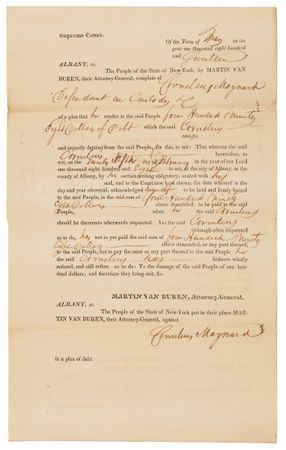 Supreme Court.
Of the Term of May in the
year one thousand eight hundred
and
ALBANY, ss. The People of the State of New-York, by MARTIN VAN
BUREN, their Attorney-General, complain of
Cornelius Maynard
Defendant in Custody &c
of a plea that he render to the said People four Hundred Ninety
Eight Dollars of Debt which the said Cornelius
owes to
and unjustly detains from the said People, for this to wit: That whereas the said
Cornelius heretofore, to
wit, on the Twenty fifth day of February in the year of our Lord
one thousand eight hundred and Eight at the city of Albany, in the
county of Albany, by his certain writing obligatory, sealed with his
seal, and to the Court now here shewn, the date whereof is the
day and year aforesaid, acknowledged himself to be held and firmly bound
to the said People, in the said sum of four Hundred Ninety
Eight Dollars above demanded, to be paid to the said
People, when he the said Cornelius
should be thereunto afterwards requested. Yet the said Cornelius
although often requested
so to do, has not yet paid the said sum of four Hundred Ninety
Eight Dollars above demanded, or any part thereof,
to the said People, but to pay the same or any part thereof to the said People he
the said Cornelius has hitherto wholly
refused, and still refuses so to do: To the damage of the said People of one hun-
dred dollars; and therefore they bring suit, &c.
MARTIN VAN BUREN, Attorney-General.
ALBANY, ss.
The People of the State of New-York put in their place MAR-
TIN VAN BUREN, their Attorney-General, against
Cornelius Maynard
In a plea of debt.